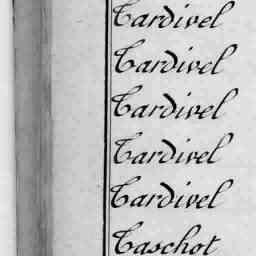 Tardivel
Tardivel
Tardivel
Tardivel
Tardivel
Taschot